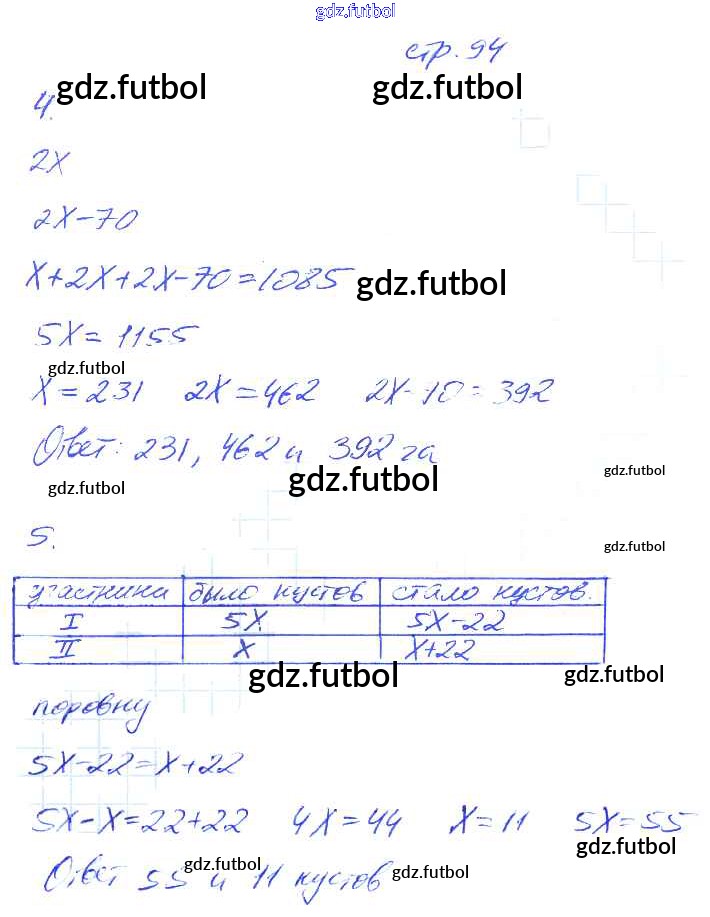 gdz.futbol
стр. 94
gdz.futbol gdz.futbol
4.
2x
2x-70
x+2x+2x-70=1085
gdz.futbol
5x=1155
gdz.futbol
x=231 2x=462 2x-10=392
Ответ: 231, 462 и 392 га
gdz.futbol gdz.futbol gdz.futbol
5.
gdz.futbol
участники было кустов стало кустов.
I 5x 5x-22
II x x+22
gdz.futbol gdz.futbol
поровну
5x-22=x+22
5x-x=22+22 4x=44 x=11 5x=55
gdz.futbol
Ответ 55 и 11 кустов
gdz.futbol gdz.futbol